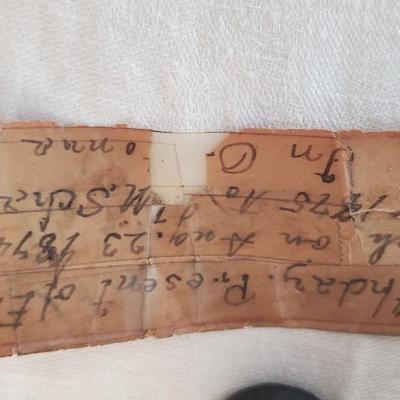 hday. Present of E
h on Aug. 23 1874
1875 to M. Sche
In O onna